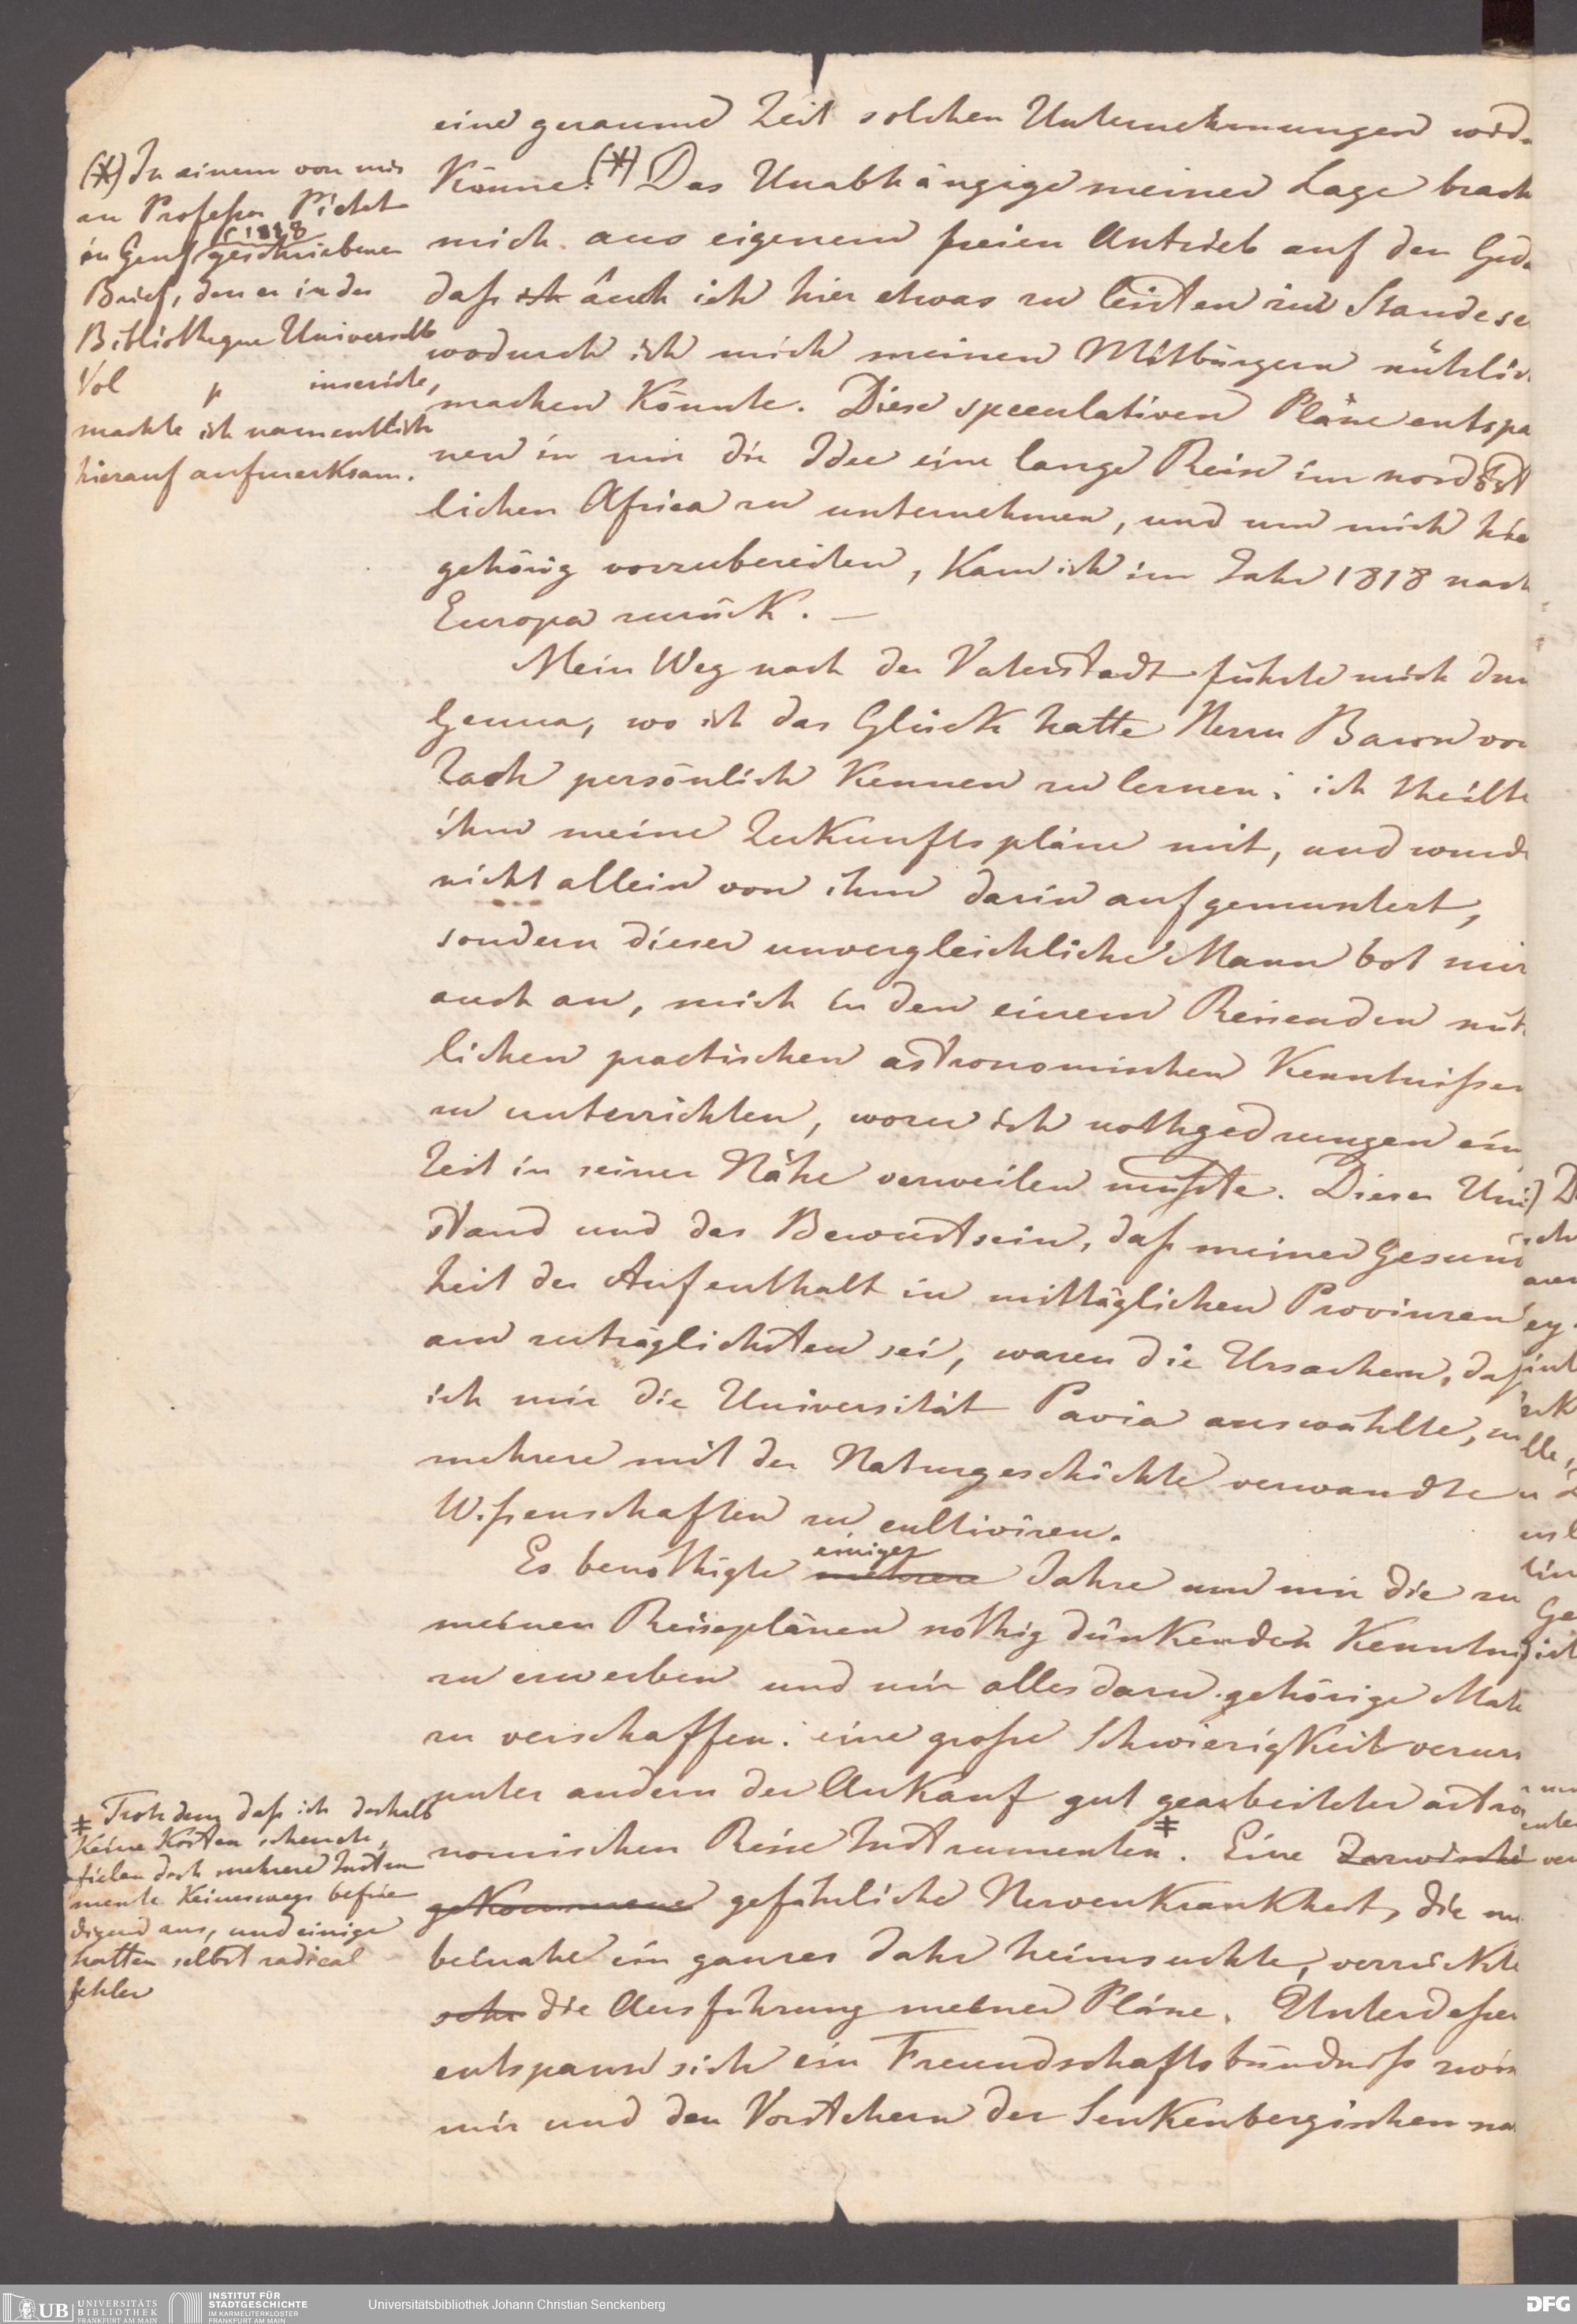 eine geraume Zeit solchen Unternehmungen wid
könne.(*) Das Unabhängige meiner Lage brach
mich aus eigenem freien Antrieb auf den Ged
daß ich auch ich hier etwas zu leisten im Stande se
wodurch ich mich meinen Mitbürgern nützlic
machen könnte. Diese speculativen Pläne entspa
nen in mir die Idee eine lange Reise im nordöst
lichen Africa zu unternehmen, und um mich hie
gehörig vorzubereiten, kam ich im Jahr 1818 nach
Europa zurück. —
Mein Weg nach der Vaterstadt führte mich dur
Genua, wo ich das Glück hatte Herrn Baron von
Zach persönlich kennen zu lernen; ich theilte
ihm meine Zukunftspläne mit, und wurde
nicht allein von ihm darin aufgemuntert,
sondern dieser unvergleichliche Mann bot mir
auch an, mich in den einem Reisenden nütz
lichen practischen astronomischen Kenntnißen
zu unterrichten, wozu ich nothgedrungen ein
Zeit in seiner Nähe verweilen mußte. Dieser Um
stand und das Bewustsein, daß meiner Gesund
heit der Aufenthalt in mittäglichen Provinzen
am zuträglichsten sei, waren die Ursachen, daß
ich mir die Universität Pavia auswählte, u
mehrere mit der Naturgeschichte verwandte
Wißenschaften zu cultiviren.
Es benöthigte mehrere einiger Jahre um mir die zu
meinen Reiseplänen nöthig dünkenden Kenntniß
zu erwerben und mir alles dazu gehörige Mate
zu verschaffen: eine große Schwierigkeit verurs
unter andern der Ankauf gut gearbeiteter astro
nomischen Reise Instrumenten ‡. Eine Dazwische
gekommene gefährliche Nervenkrankheit, die mi
beinahe ein ganzes Jahr heimsuchte, verrückte
sehr die Ausführung meiner Pläne. Unterdeßen
entspann sich ein Freundschaftsbündniß zwis
mir und den Vorstehern der Senkenbergischen na
(*) In einem von mir
an Profeßor Pictet
in Genf (1818 geschriebenen
Brief, den er in der
Bibliotheque Universelle
Vol p inserirte,
machte ich namentlich
hierauf aufmerksam.
‡ Trotz dem daß ich deshalb
keine Kosten scheute,
fielen doch mehrere Instru
mente keineswegs befrie
digend aus, und einige
hatten selbst radical
fehler
UB UNIVERSITÄTS
BIBLIOTHEK
FRANKFURT AM MAIN
INSTITUT FÜR
STADTGESCHICHTE
IM KARMELITERKLOSTER
FRANKFURT AM MAIN
Universitätsbibliothek Johann Christian Senckenberg
DFG